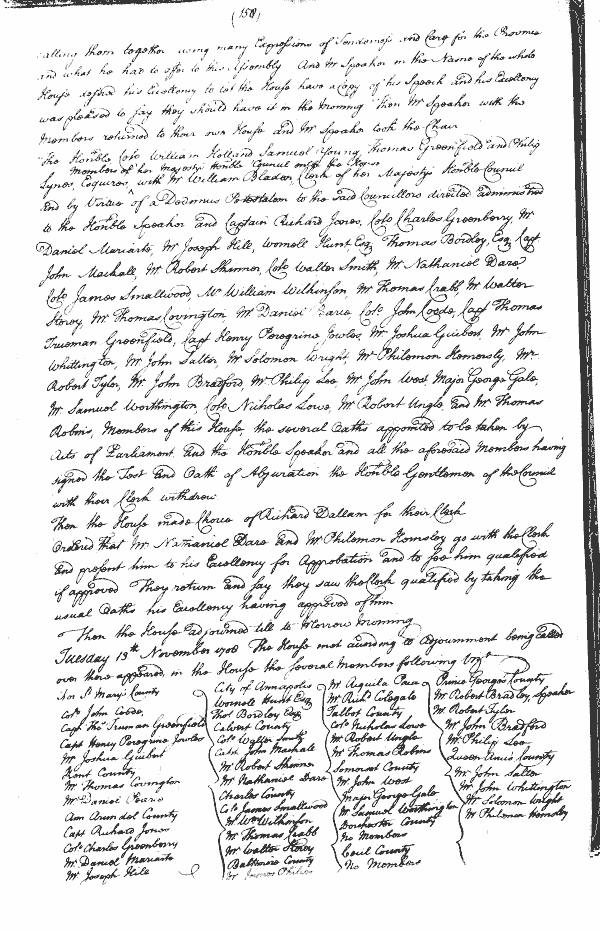 (158)
calling them together using many Expressions of Tenderness and Care for the Province
and what he had to offer to this Assembly And Mr Speaker in the Name of the whole
House asked his Excellency to let the House have a Copy of his Speech and his Excellency
was pleased to say they should have it in the morning Then Mr Speaker with the
members returned to their own House and Mr Speaker took the Chair
The Honble Colo William Holland Samuel Young Thomas Greenfield and Philip
Members of her Majestys Honble Council enter the House
Lynes, Esquires, with Mr William Bladen, Clerk of her Majestys Honble Council
and by Virtue of a Dedimus Potestatem to the said Councillors directed administred
to the Honble Speaker and Captain Richard Jones, Colo Charles Greenberry, Mr
Daniel Mariarte, Mr Joseph Hill, Wornell Hunt Esq Thomas Bordley, Esq Capt
John Mackall, Mr Robert Skinner, Colo Walter Smith, Mr Nathaniel Dare
Colo James Smallwood, Mr William Wilkinson, Mr Thomas Crabb, Mr Walter
Storey, Mr Thomas Covington Mr Daniel Pearce Colo John Coode, Capt Thomas
Trueman Greenfield, Capt Henry Peregrine Jowles, Mr Joshua Guibert, Mr John
Whittington, Mr John Salter, Mr Solomon Wright Mr Philemon Hemersly, Mr
Robert Tyler, Mr John Bradford, Mr Philip Lee, Mr John West Major George Gale,
Mr Samuel Worthington, Colo Nicholas Lowe, Mr Robert Ungle, and Mr Thomas
Robins, Members of this House, the several Oaths appointed to be taken by
Acts of Parliament, and the Honble Speaker and all the aforesaid Members having
signed the Test and Oath of Abjuration the Honble Gentlemen of the Council
with their Clerk withdrew
Then the House made Choice of Richard Dallam for their Clerk
Ordered that Mr Nathaniel Dare and Mr Philemon Hemsley go with the Clerk
and present him to his Excellency for Approbation and to see him qualified
if approved They return and say they saw the Clerk qualified by taking the
usual Oaths his Excellency having approved of him
Then the House adjourned till to Morrow morning
Tuesday 13th November 1708 The House met according to Adjournment being called
over there appeared, in the House the several Members following Vizt
For St Marys County
Colo John Coode,
Capt Tho Truman Greenfield
Capt Henry Peregrine Jowles
Mr Joshua Guibert
Kent County
Mr Thomas Covington
Mr Daniel Pearce
Ann Arundel County
Capt Richard Jones
Colo Charles Greenberry
Mr Daniel Mariarte
Mr Joseph Hill
City of Annapolis
Wornell Hunt Esq
Thos Bordley Esq
Calvert County
Colo Walter Smith
Capt John Mackall
Mr Robert Skinner
Mr Nathaniel Dare
Charles County
Colo James Smallwood
Mr Wm Wilkinson
Mr Thomas Crabb
Mr Walter Storey
Baltimore County
Mr James Philips
Mr Aquila Paca
Mr Richd Colegate
Talbot County
Colo Nicholas Lowe
Mr Robert Ungle
Mr Thomas Robins
Somerset County
Mr John West
Major George Gale
Mr Samuel Worthington
Dorchester County
No Members
Cecil County
No Members
Prince Georges County
Mr Robert Bradley, Speaker
Mr Robert Tyler
Mr John Bradford
Mr Philip Lee
Queen Anns County
Mr John Salter
Mr John Whittington
Mr Solomon Wright
Mr Philemon Hemsley